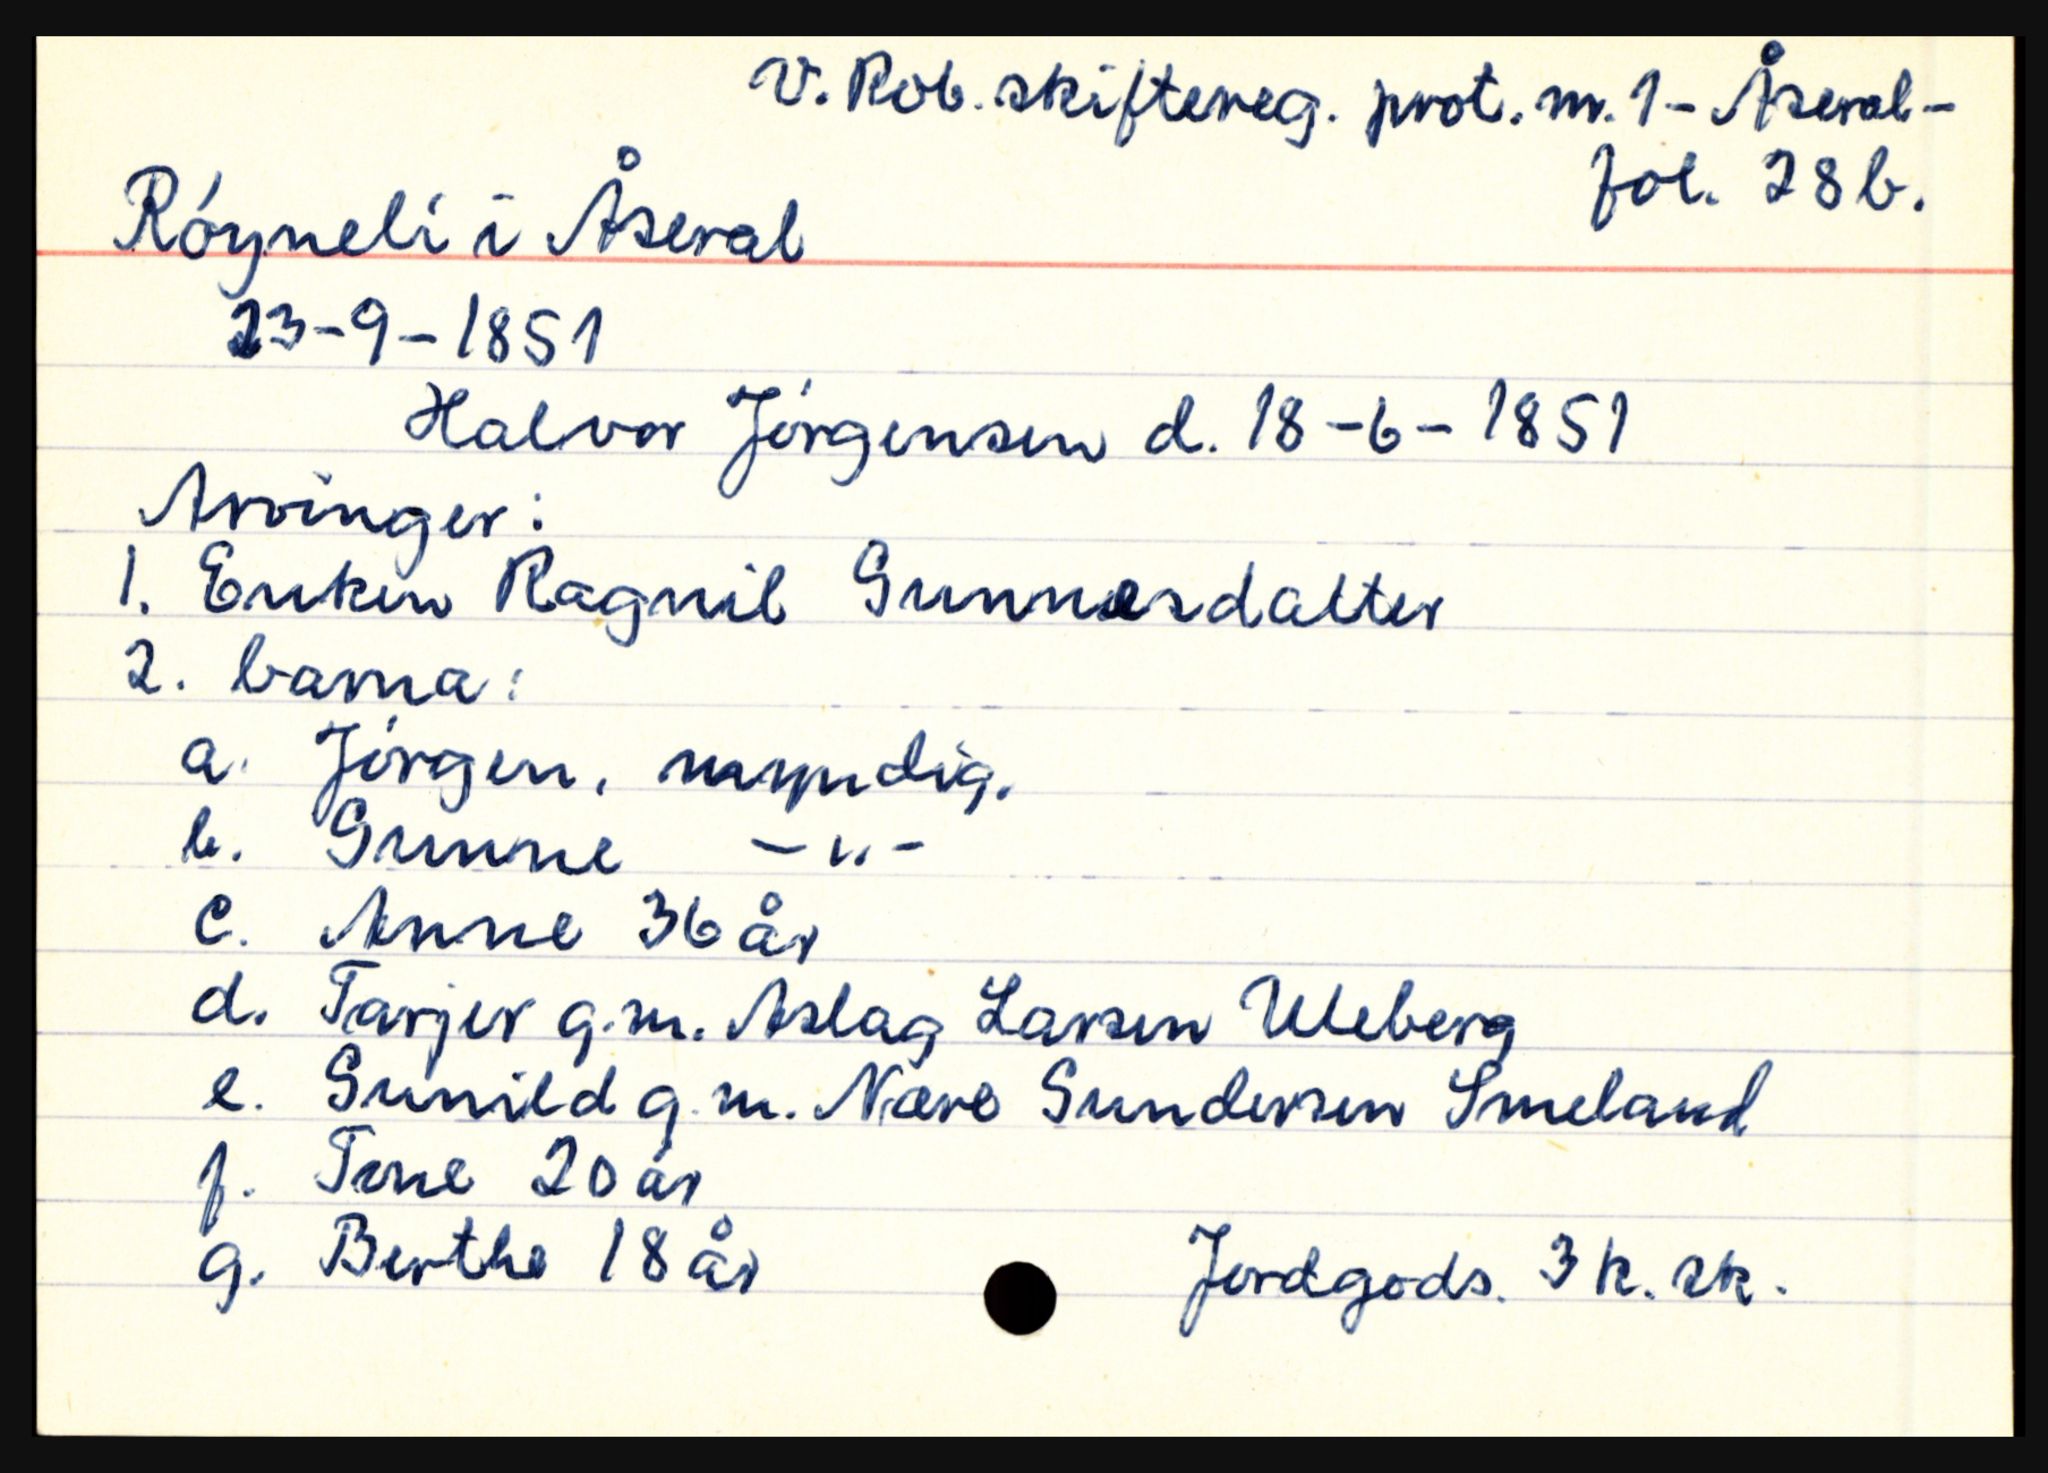 V. Rob. skiftereg. prot. nr. 1 - Åseral -
fol. 28 b.
Röyneli i Åseral
23-9-1851
Halvor Jörgensen d. 18-6-1851
Arvinger:
1. Enken Ragnil Gunnersdatter
2. barna:
a. Jörgen, myndig.
b. Gunne -"-
c. Anne 36 år
d. Tarjer g.m. Aslag Larsen Uleberg
e. Gunild g.m. Nære Gundersen Smeland
f. Tone 20 år
g. Berthe 18 år
Jordgods. 3 k. sk.